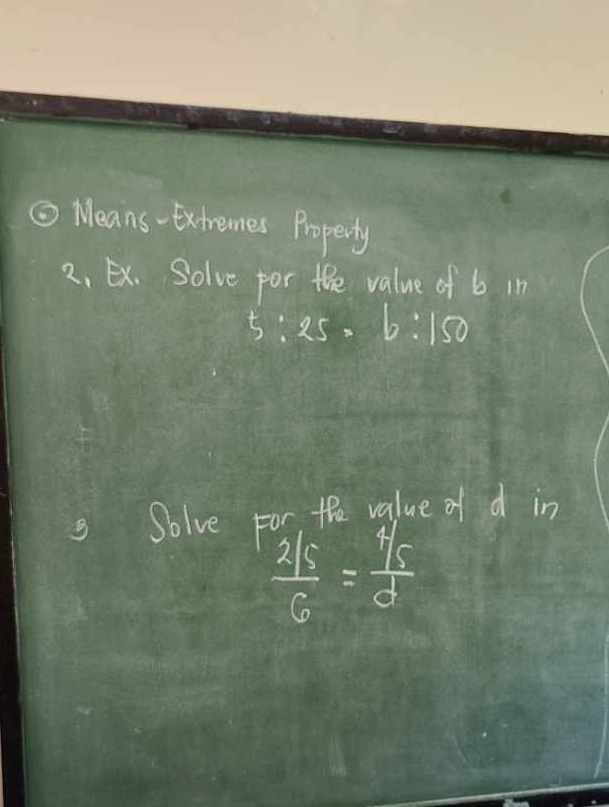 ⊙ Means-Extremes Property
2. Ex. Solve for the value of b in
5 : 25 = b : 150
3 Solve For the value of d in
2/5 / 6 = 4/5 / d